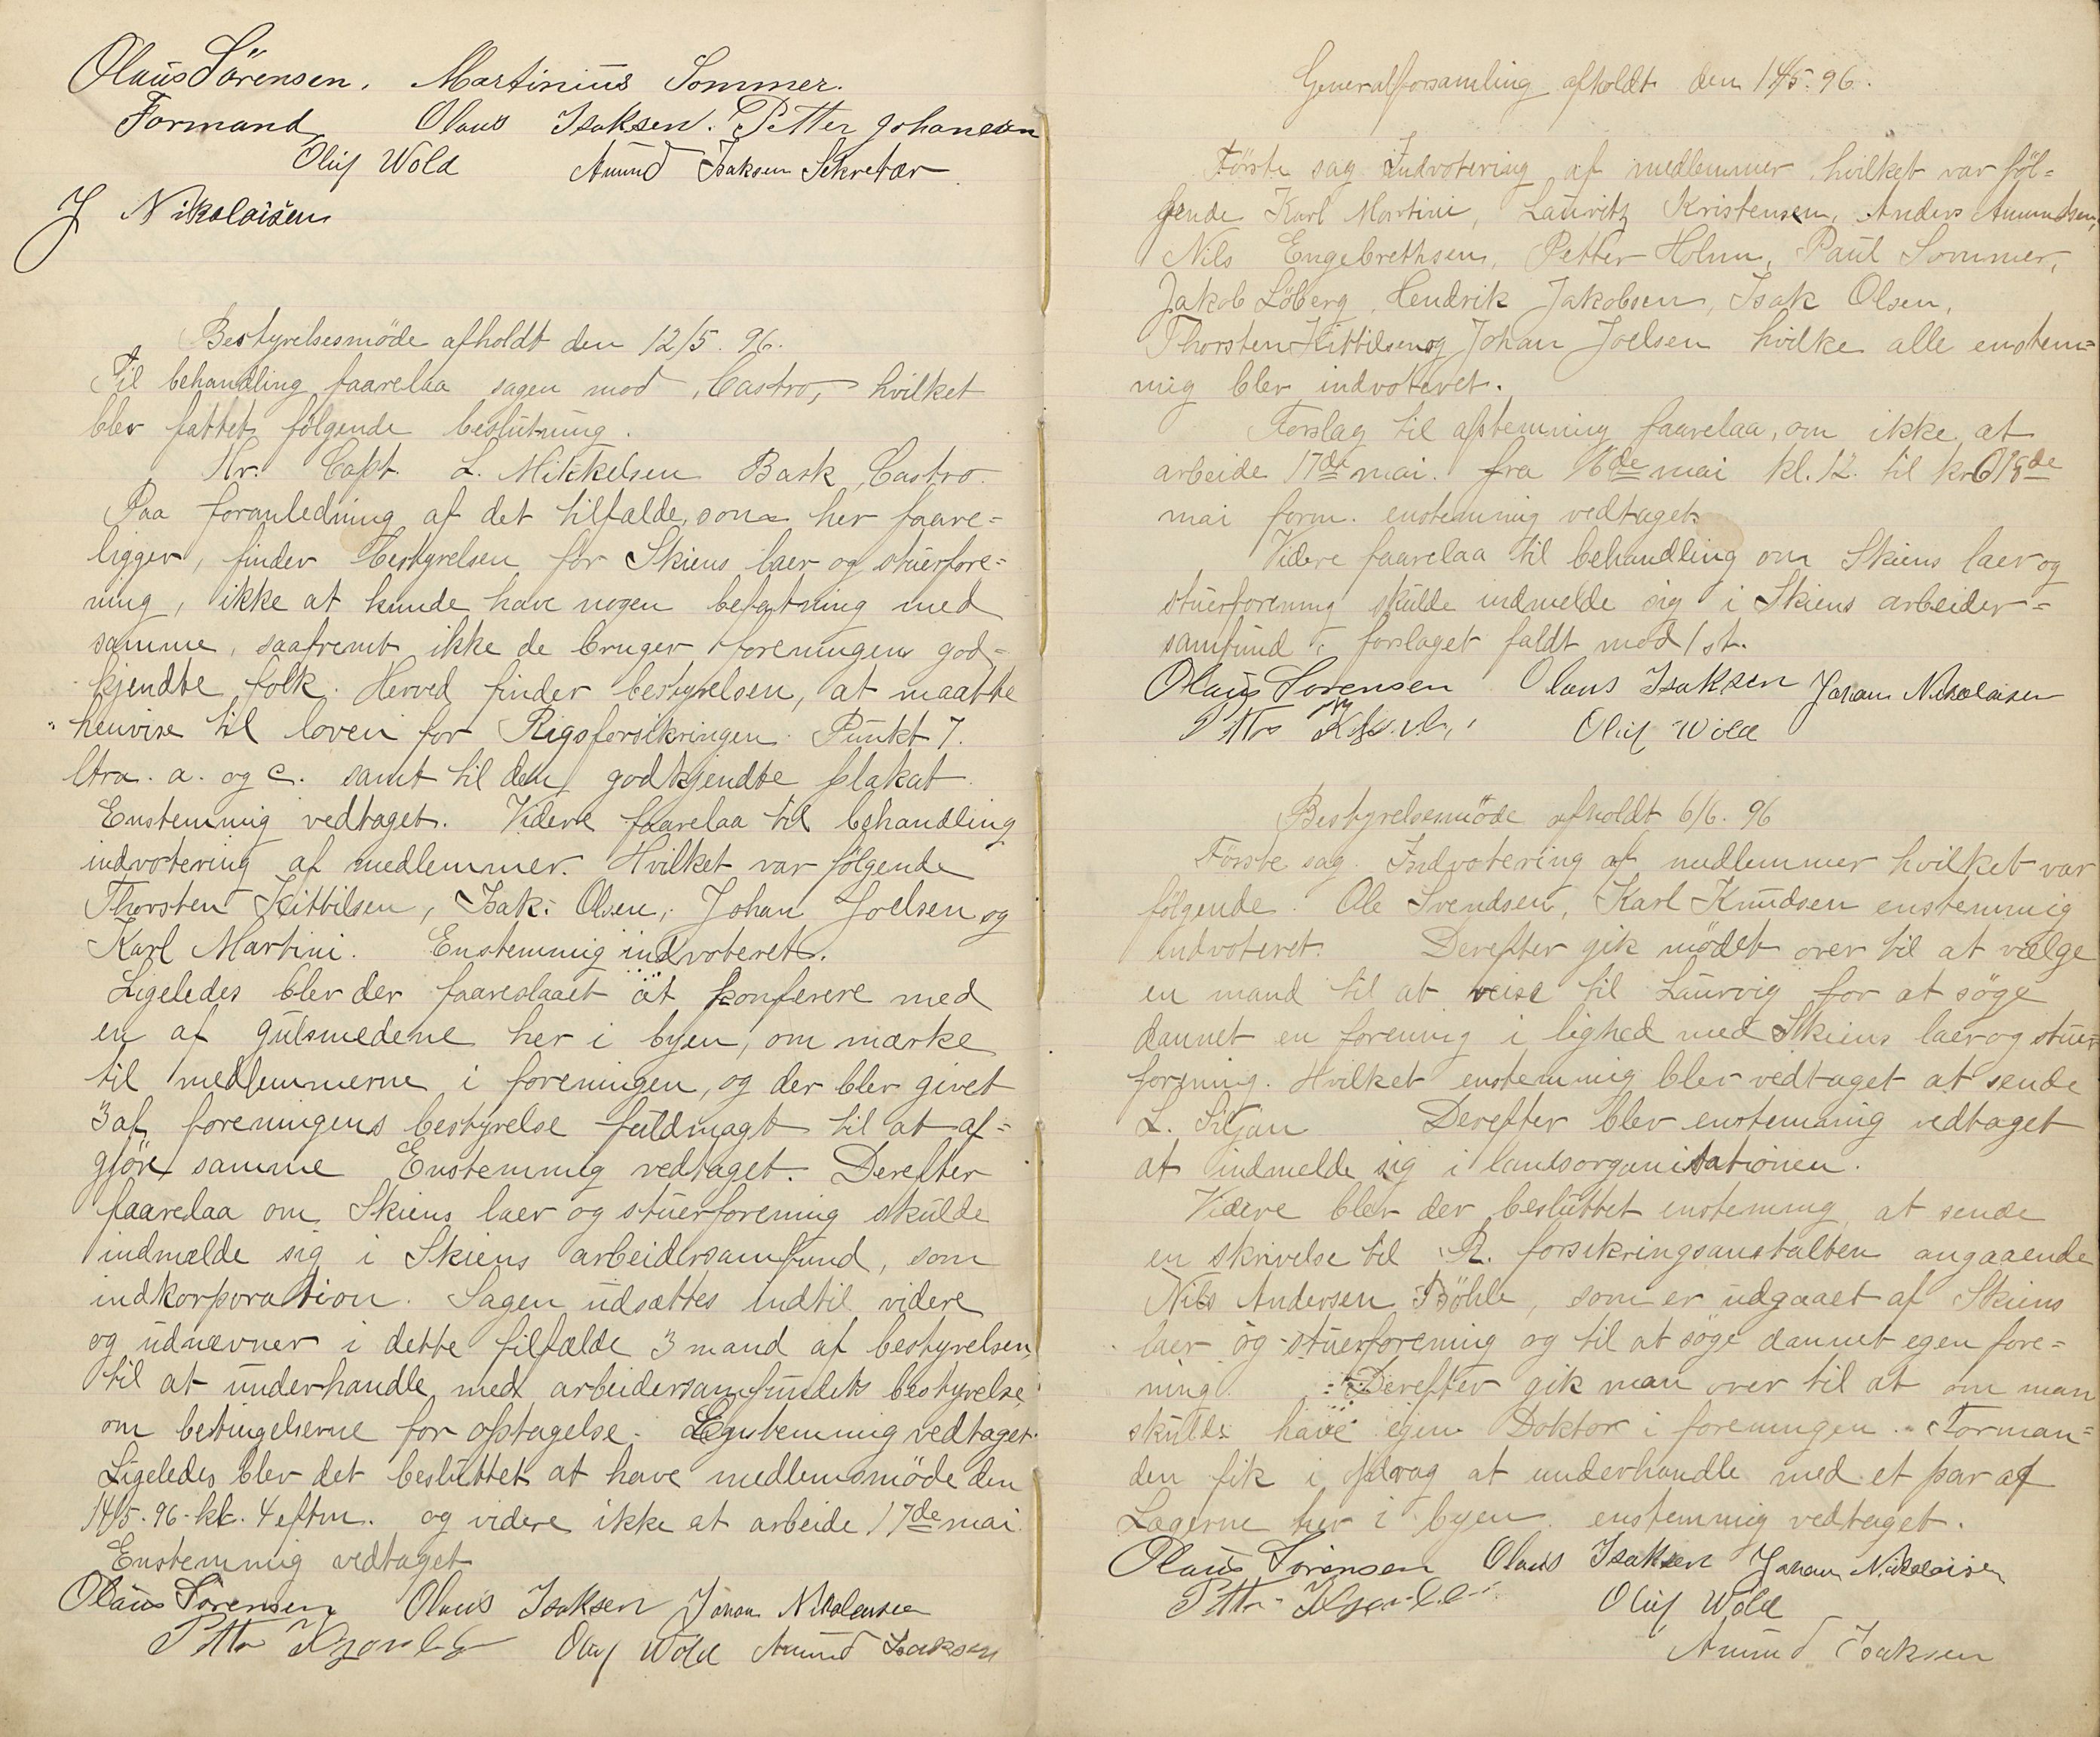 Olaus Sörensen. Martinius Sommer.
Formand Olaus Isaksen. Petter Johansen
Oluf Wold Amund Isaksen Sekretær
J Nikolaisen
Bestyrelsesmöde afholdt den 12/5. 96.
Til behandling faarelaa sagen mod „Castro„ hvilket
blev fattet fölgende beslutning.
Hr. Capt. L. Mikkelsen Bark „Castro.
Paa foranledning af det tilfælde, som her faare=
ligger, finder bestyrelsen for Skiens laer og stuerfore=
ning, ikke at kunde have nogen befatning med
samme, saafremt ikke de bruger foreningens god=
kjendte folk. Herved finder bestyrelsen, at maatte
henvise til loven for Rigsforsikringen. Punkt 7.
ltra. a. og c. samt til den godkjendte plakat
Enstemmig vedtaget. Videre faarelaa til behandling
indvotering af medlemmer. Hvilket var fölgende
Thorsten Kittilsen, Isak. Olsen, Johan Joelsen og
Karl Martini. Enstemmig indvoteret.
Ligeledes blev der faareslaaet at konferere med
en af gulsmedene her i byen, om mærke
til medlemmerne i foreningen, og der blev givet
3 af foreningens bestyrelse fuldmagt til at af=
gjöre samme Enstemmig vedtaget. Derefter
faarelaa om Skiens laer og stuerforening skulde
indmælde sig i Skiens arbeidersamfund, som
indkorporation. Sagen udsættes indtil videre
og udnævner i dette tilfælde 3 mand af bestyrelsen,
til at underhandle med arbeidersamfundets bestyrelse,
om betingelserne for optagelse. Enstemmig vedtaget.
Ligeledes blev det besluttet at have medlemsmöde den
14/5. 96. kl. 4 eftm. og videre ikke at arbeide 17de mai.
Enstemmig vedtaget
Olaus Sörensen Olaus Isaksen Johan Nikolaisen
Oluf Wold Amund Isaksen
Generalforsamling afholdt den 14/5. 96.
Förste sag Indvotering af medlemmer hvilket var föl=
gende Karl Martini, Lauritz Kristensen, Anders Amundsen,
Nils Engebrethsen, Petter Holm, Paul Sommer,
Jakob Löberg, Hendrik Jakobsen, Isak Olsen,
Thorsten Kittilsen og Johan Joelsen hvilke alle enstem=
mig blev indvoteret.
Forslag til afstemning faarelaa, om ikke at
arbeide 17de mai. fra 16de mai kl. 12. til kl 6 18de
mai form. enstemmig vedtaget
Videre faarelaa til behandling om Skiens laer og
stuerforening skulde indmelde sig i Skiens arbeider=
samfund, forslaget faldt mod 1 st.
Olaus Sorensen Olaus Isaksen Johan Nikolaisen
Oluf Wold
Bestyrelsesmöde afholdt 6/6. 96
Förste sag. Indvotering af medlemmer hvilket var
fölgende. Ole Svendsen, Karl Knudsen enstemmig
indvoteret. Derefter gik mödet over til at vælge
en mand til at reise til Laurvig for at söge
dannet en forening i lighed med Skiens laer og stuer
forening. Hvilket enstemmig blev vedtaget at sende
L. Siljan Derefter blev enstemmig vedtaget
at indmelde sig i landsorganisationen.
Videre blev der besluttet enstemmig, at sende
en skrivelse til R. forsikringsanstalten angaaende
Nils Andersen Böhle, som er udgaaet af Skiens
laer og stuerforening og til at söge dannet egen fore=
ning. Derefter gik man over til at om man
skulde have egen Doktor i foreningen. Forman=
den fik i opdrag at underhandle med et par af
Lægerne her i byen. enstemmig vedtaget.
Olaus Sörensen Olaus Isaksen Johan Nikolaisen
Oluf Wold
Amund Isaksen